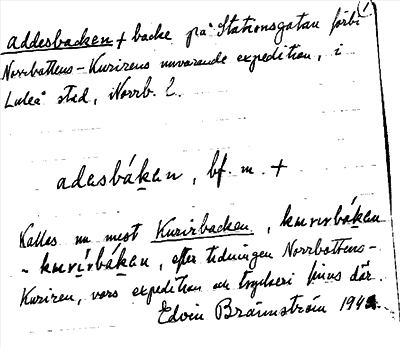 addesbacken + backe på Stationsgatan förbi
Norrbottens-Kurirens nuvarande expedition, i
Luleå stad, Norrb. l.
adasbákan, bf. m. +
Kallas nu mest Kurirbacken, kurirbákan
- kurírbákan, efter tidningen Norrbottens-
Kuriren, vars expedition och tryckeri finns där.
Edvin Brännström